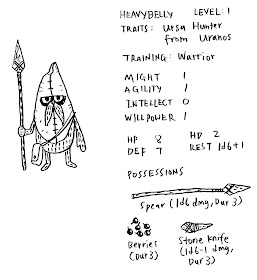 HEAVYBELLY LEVEL: 1
TRAITS: Ursa Hunter
from Uranos
TRAINING: Warrior
MIGHT 1
AGILITY 1
INTELLECT 0
WILLPOWER 1
HP 8 HD 2
DEF 7 REST 1d6+1
POSSESSIONS
Spear (1d6 dmg, Dur 3)
Berries
(Dur 3)
Stone knife
(1d6-1 dmg,
Dur 3)